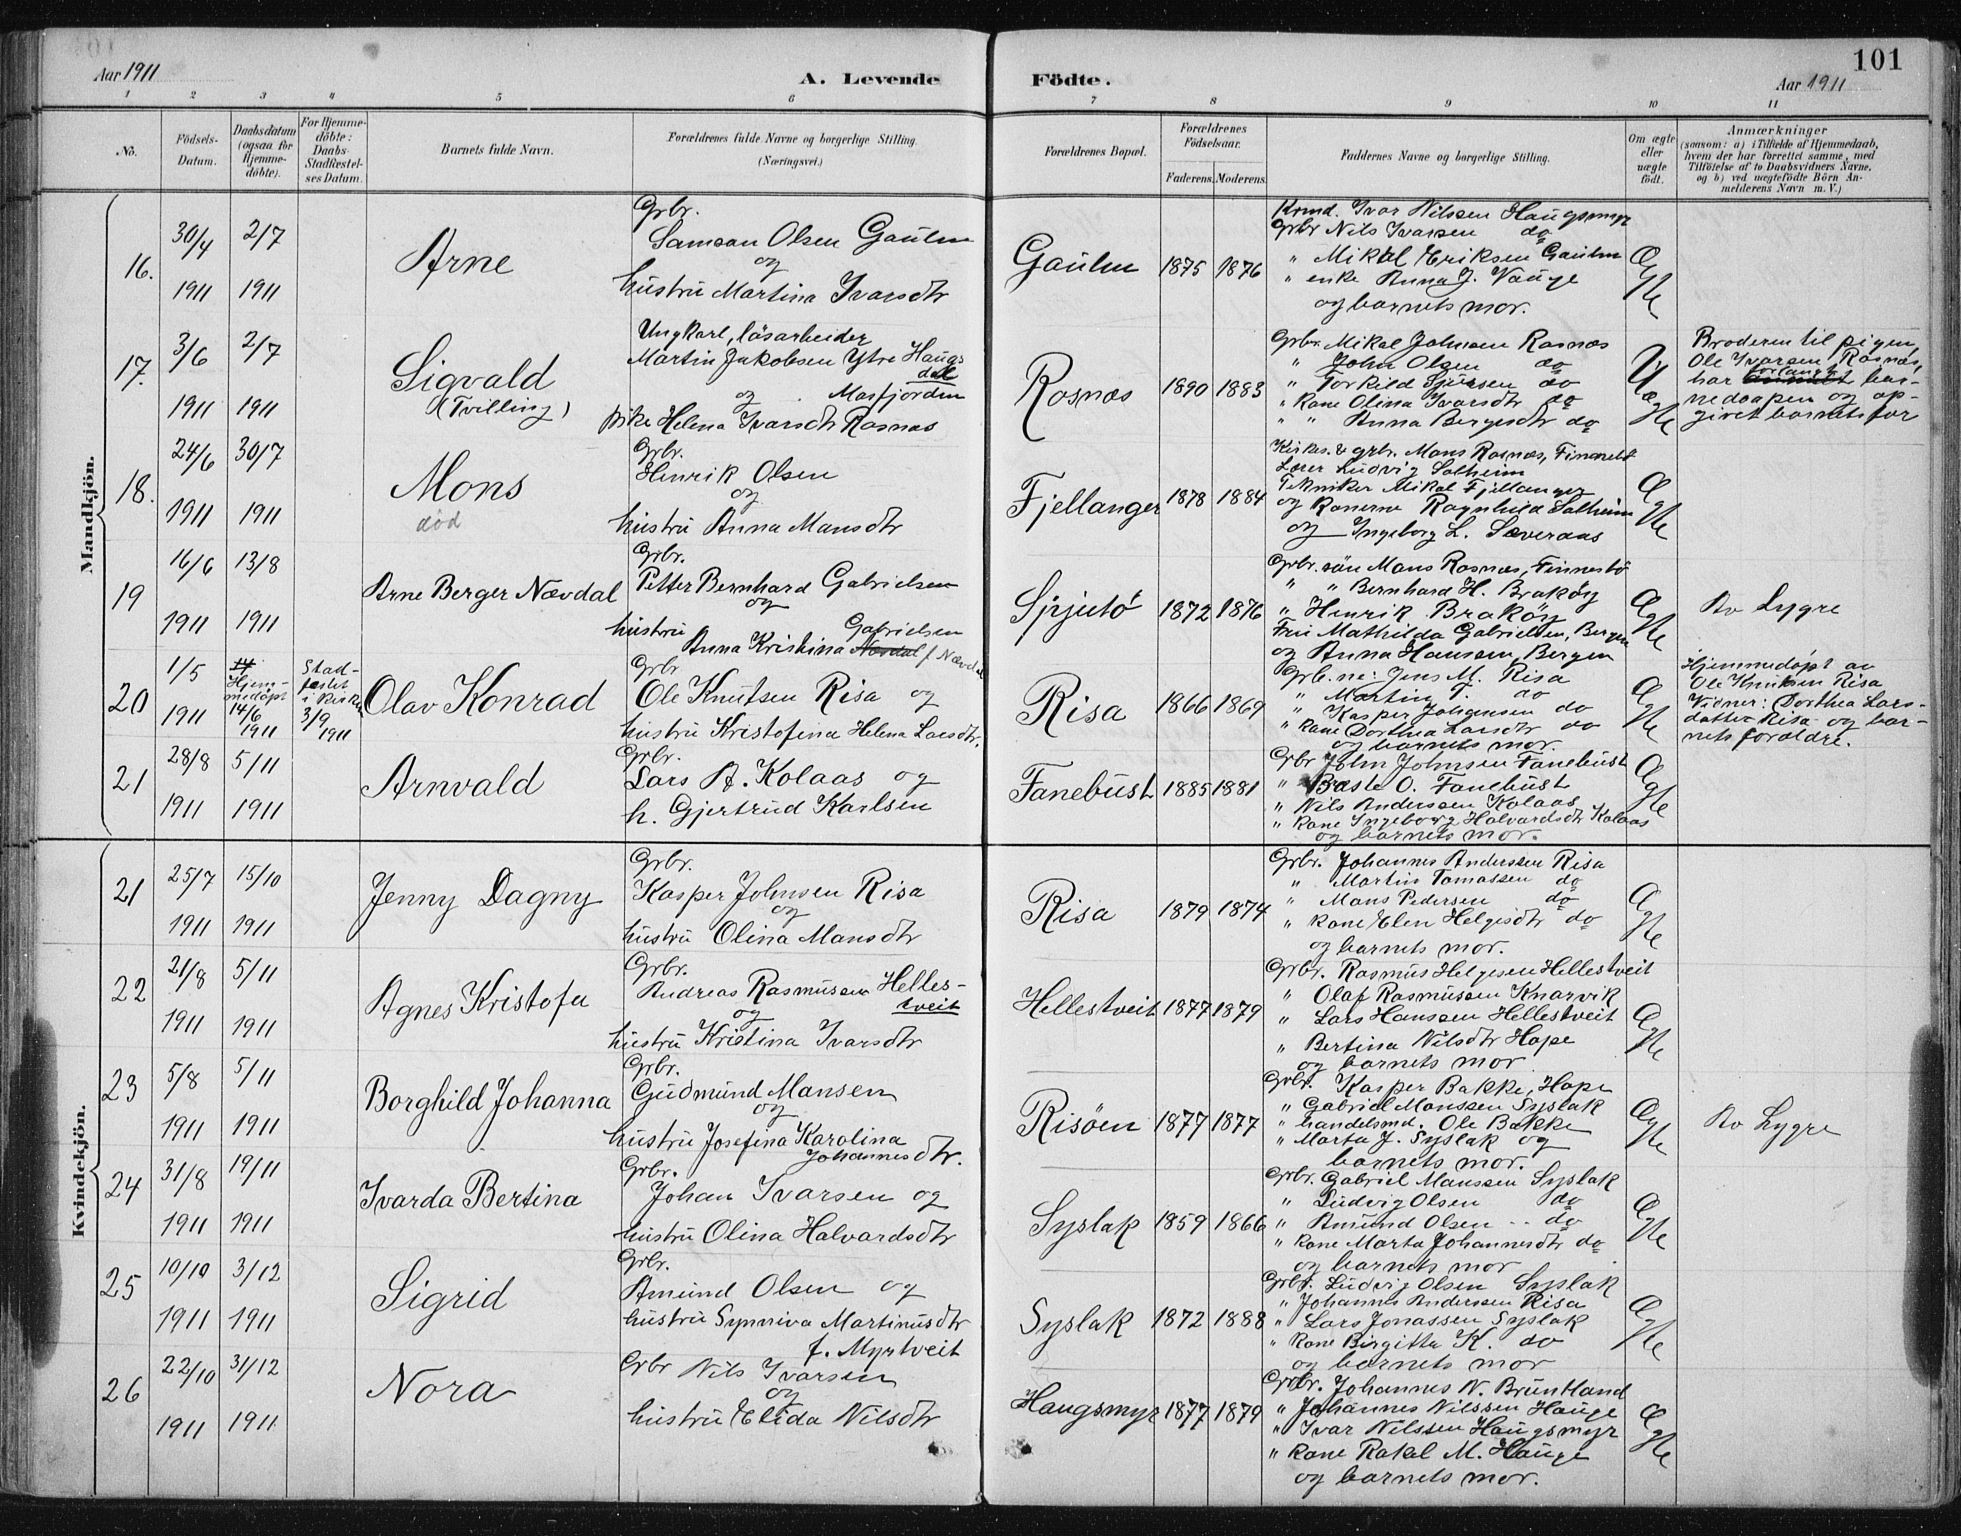 101
Aar 1911
A. Levende
Födte.
Aar 1911
1 2 3 4 5 6 7 8 9 10 11
No.
Födsels-Datum.
Daabsdatum (ogsaa for Hjemme-döbte).
For Hjemme-döbte: Daabs-Stadfæstel-ses Datum.
Barnets fulde Navn.
Forældrenes fulde Navne og borgerlige Stilling. (Næringsvei.)
Forældrenes Bopæl.
Forældrenes Födselsaar.
Faderens. Moderens.
Faddernes Navne og borgerlige Stilling.
Om ægte eller uægte födt.
Anmærkninger
(saasom: a) i Tilfælde af Hjemmedaab,
hvem der har forrettet samme, med
Tilföielse af to Daabsvidners Navne,
og b) ved uægtefödte Börn An-
melderens Navn m. V.)
Mandkjön.
16.
30/4 1911
2/7 1911
Arne
Grbr.
Samson Olsen Gaulen
og
hustru Martina Ivarsdtr
Gaulen
1875 1876
Krmd. Ivar Nilssen Haugsmyr
Grbr Nils Ivarsen do
" Mikal Eriksen Gaulen
" enke Anna J. Vauge
og barnets mor.
Ægte
17.
3/6 1911
2/7 1911
Sigvald
(Tvilling)
Ungkarl, lösarbeider
Martin Jakobsen Ytre Haugs
dal
og Masfjorden
pike Helena Ivarsdtr Rosnæs
Rosnæs
1890 1883
Grbr. Mikal Johnsen Rosnæs
" John Olsen do
" Torkild Sjursen do
" Kone Olina Ivarsdtr do
" " Anna Bergesdtr do
Uægte
Broderen til pigen,
Ole Ivarsen Rosnæs,
har forlangt bar-
nedaapen og op-
givet barnets far
18.
24/6 1911
30/7 1911
Mons
död
Grbr.
Henrik Olsen
og
hustru Anna Monsdtr
Fjellanger
1878 1884
Kirkes. & grbr. Mons Rosnæs, Finnestö
Lærer Ludvig Solheim
Tekniker Mikal Fjellanger
og Konerne Ragnhild Solheim
og Ingeborg L. Sæveraas
Ægte
19
16/6 1911
13/8 1911
Arne Berger Nævdal
Grbr.
Petter Bernhard Gabrielsen
og
hustru Gabrielsen
Anna Kristina Nævdal f. Nævdal
1872 1876
Grbr. sön Mons Rosnæs, Finnestö
" " Bernhard H. Braköy
" Henrik Braköy
Fru Mathilda Gabrielsen, Bergen
og Anna Hansen, Bergen
Ægte
Av Lygre
20
1/5 1911
14
Hjem-
medöpt
14/6
1911
Stad-
festet
i kirken
3/9
1911
Olav Konrad
Grbr
Ole Knutsen Risa og
hustru Kristofina Helena Larsdtr.
Risa
1866 1869
Grb.ne: Jens M. Risa
" Martin T. do
" Kasper Johansen do
" Kone Dorthea Larsdtr do
og barnets mor.
Ægte
Hjemmedöpt av
Ole Knutsen Risa
Vidner: Dorthea Lars-
datter Risa og bar-
nets forældre.
21
28/8 1911
5/11 1911
Arnvald
Grbr.
Lars A. Kolaas og
h. Gjertrud Karlsen
Fanebust
1885 1881
Grbr John Johnsen Fanebust
" Baste O. Fanebust
" Nils Anderssen Kolaas
" Kone Ingeborg Halvardsdtr Kolaas
og barnets mor.
Ægte
Kvindekjön.
21
25/7 1911
15/10 1911
Jenny Dagny
Grbr.
Kasper Johnsen Risa
og
hustru Olina Monsdtr
Risa
1879 1874
Grbr. Johannes Anderssen Risa
" Martin Tomassen do
" Mons Pedersen do
" Kone Elen Helgesdtr do
og barnets mor.
Ægte
22
21/8 1911
5/11 1911
Agnes Kristofa
Grbr.
Andreas Rasmussen Helles-
tveit
og
hustru Kristina Ivarsdtr
Hellestveit
1877 1879
Grbr. Rasmus Helgesen Hellestveit
" Olaf Rasmussen Knarvik
" Lars Hanssen Hellestveit
" Bertina Nilsdtr Hope
og barnets mor
Ægte
23
5/8 1911
5/11 1911
Borghild Johanna
Grbr.
Gudmund Monsen
og
hustru Josefina Karolina
Johannesdtr.
Risöen
1877 1877
Grbr. Kasper Bakke, Hope
" Gabriel Monssen Syslak
" handelsmd. Ole Bakke
" Marta J. Syslak og
barnets mor.
Ægte
Av Lygre
24
31/8 1911
19/11 1911
Ivarda Bertina
Grbr.
Johan Ivarsen og
hustru Olina Halvardsdtr
Syslak
1859 1866
Grbr. Gabriel Monssen Syslak
" Ludvig Olsen do
" Amund Olsen do
" Kone Marta Johannesdtr do
og barnets mor
Ægte
25
10/10 1911
3/12 1911
Sigrid
Grbr.
Amund Olsen og
hustru Synniva Martinusdtr
f. Myrtveit
Syslak
1872 1888
Grbr. Ludvig Olsen Syslak
" Johannes Anderssen Risa
" Lars Jonassen Syslak
" Kone Birgitta K. do
og barnets mor
Ægte
26
22/10 1911
31/12 1911
Nora
Grbr Nils Ivarsen
og
hustru Elida Nilsdtr
Haugsmyr
1877 1879
Grbr. Johannes N. Bruntland
" Johannes Nilssen Hauge
" Ivar Nilssen Haugsmyr
" Kone Rakel M. Hauge
og barnets mor.
Ægte